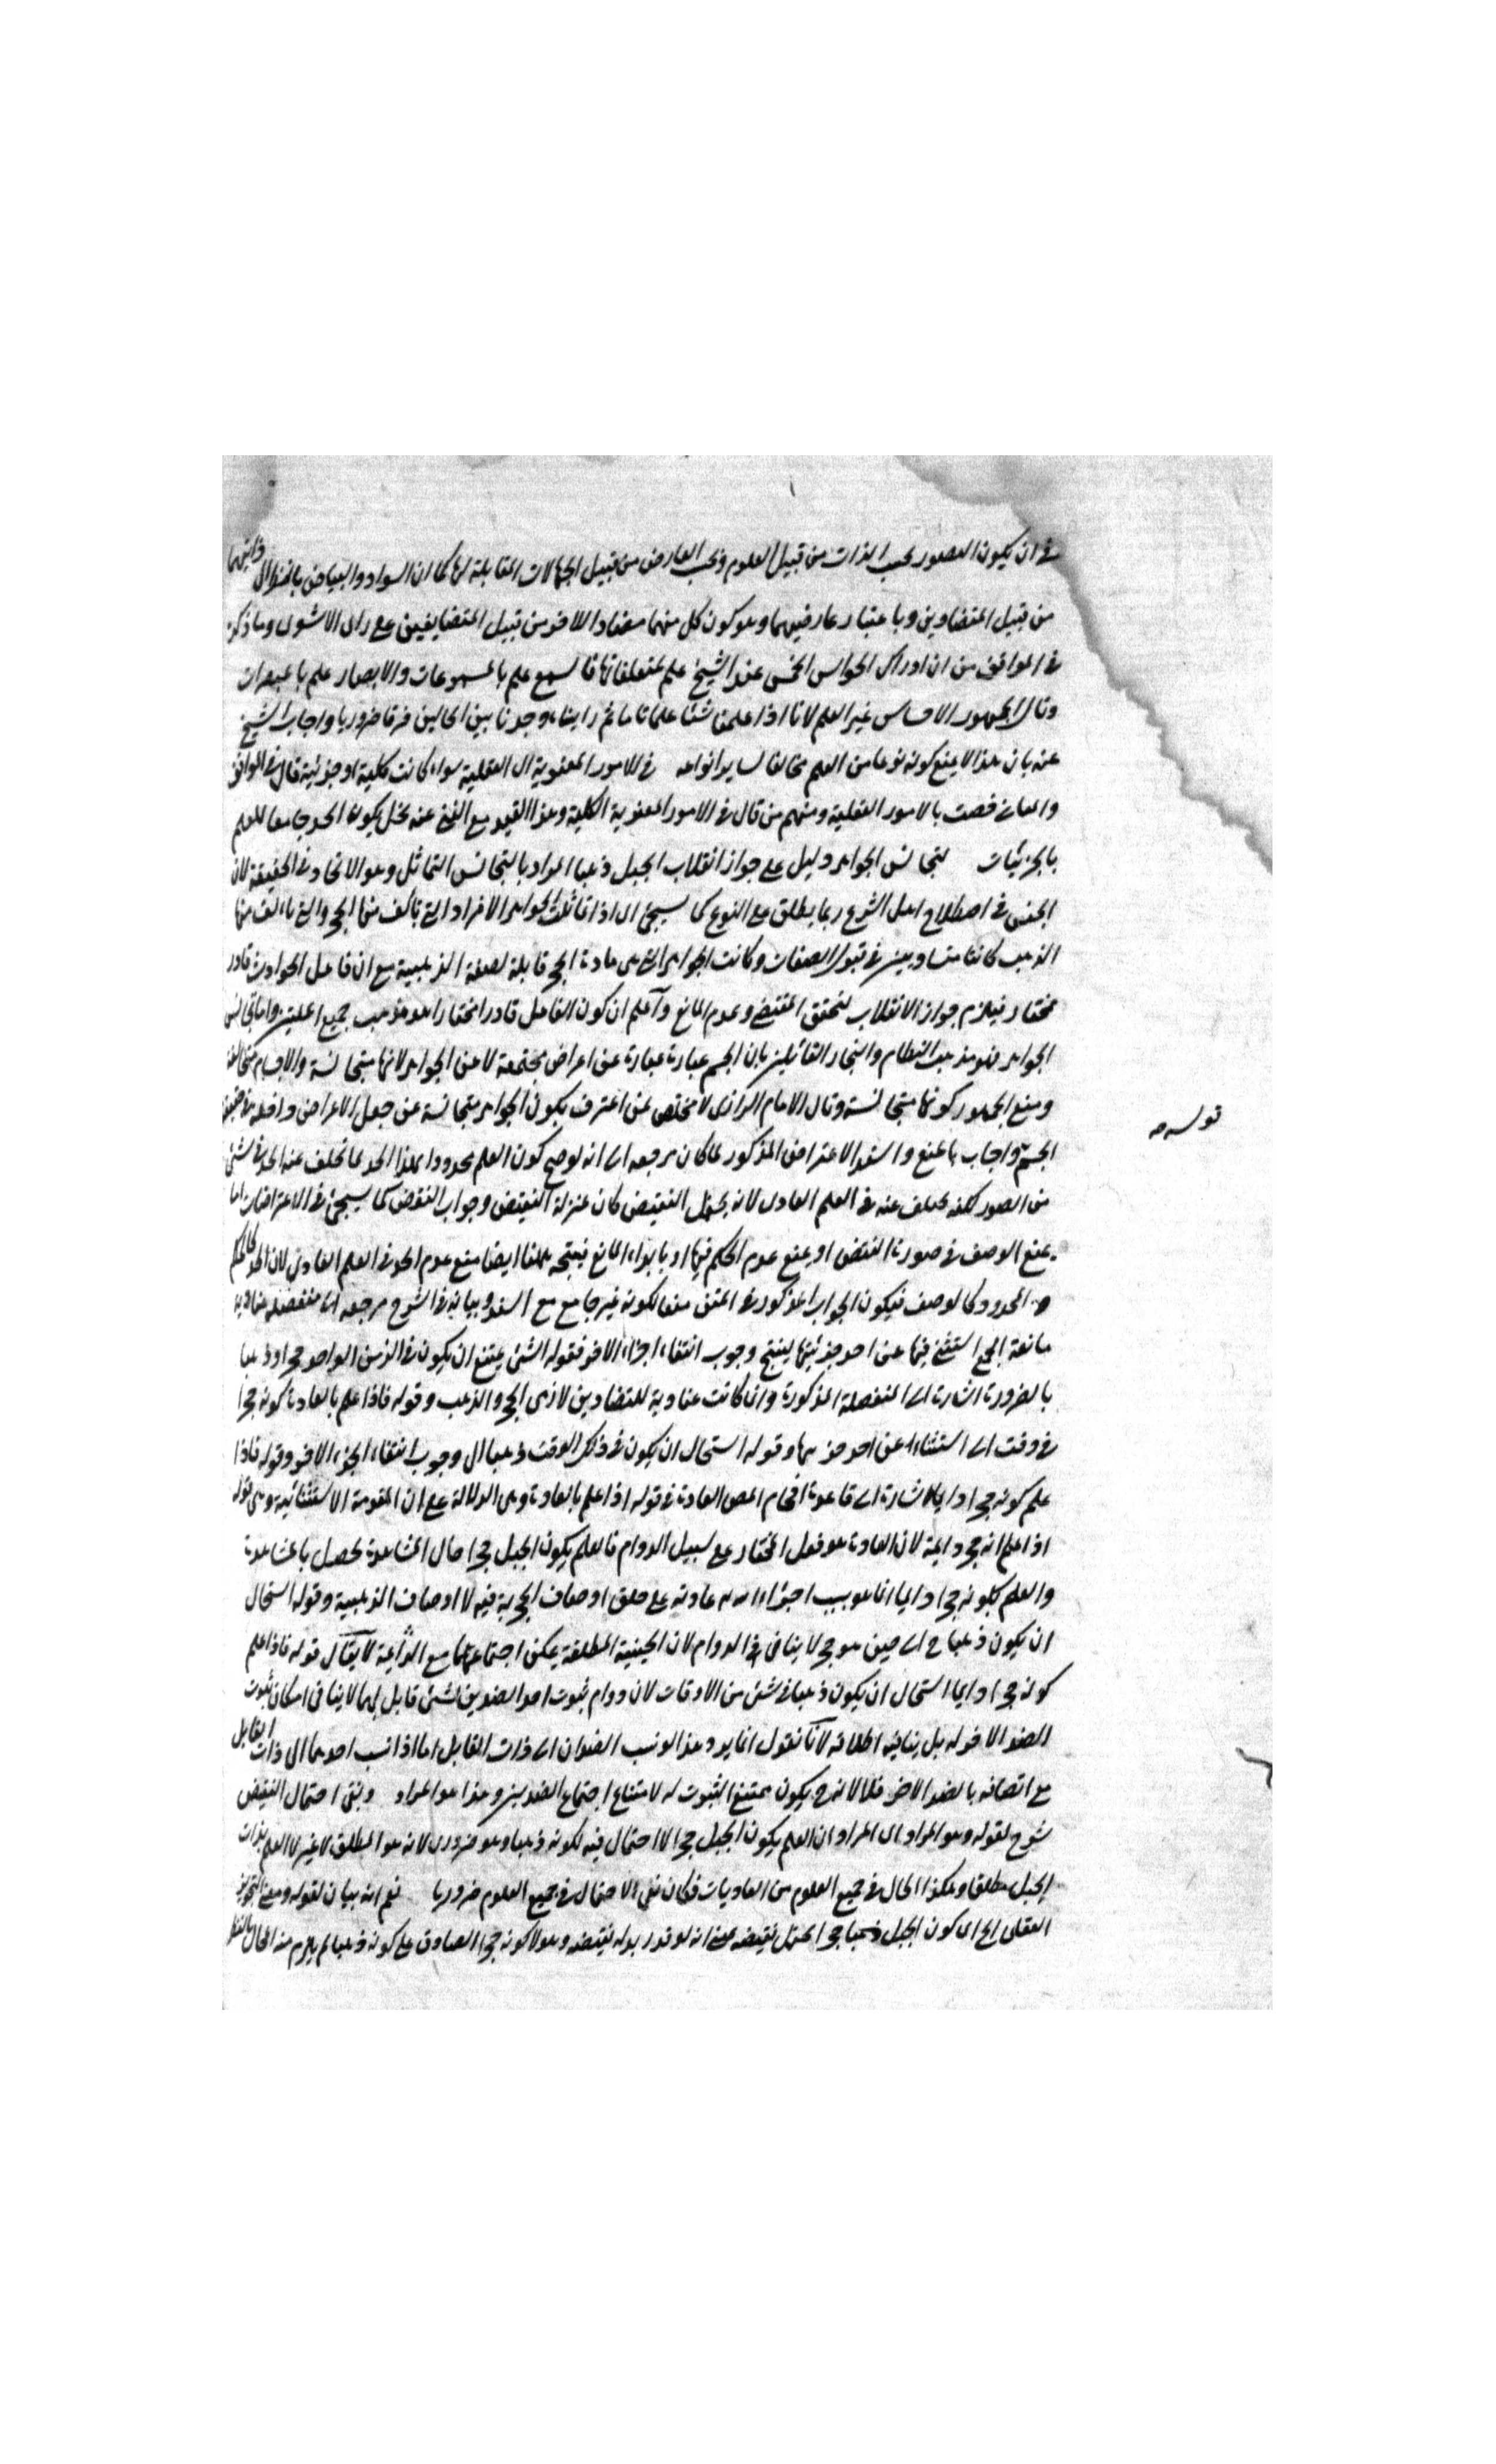 في ان يكون التصور بحسب الذات من قبيل العلوم وبحسب العارض من قبيل الجهالات المقابلة لها كما ان السواد والبياض بالنظر الى ذاتيهما
من قبيل المتضادين وباعتبار عارضيهما وهو كون كل منهما مضادا للآخر من قبيل المتضايفين على راى الاشعرى وما ذكره
في المواقف من ان ادراك الحواس الخمس عند الشيخ علم بمتعلقاتها فالسمع علم بالمسموعات والابصار علم بالمبصرات
وقال الجمهور الاحساس غير العلم لانا اذا علمنا شئا علما تاما ثم رايناه وجدنا بين الحالين فرقا ضروريا واجاب الشيخ
عنه بان هذا لا يمنع كونه نوعا من العلم مخالفا لساير انواعه في الامور المعنوية اى العقلية سواء كانت كلية او جزئية قال في المواقف
والمعاني خصت بالامور العقلية ومنهم من قال في الامور المعنوية الكلية وهذا القيد مع الغنى عنه يخل بكون الحد جامعا للعلم
بالجزئيات لتجانس الجواهر دليل على جواز انقلاب الجبل ذهبا المراد بالتجانس التماثل وهو الاتحاد في الحقيقة لان
الجنس في اصطلاح اهل الشرع ربما يطلق على النوع كما سيجئ اى اذا تماثلت الجواهر الافراد التي تألف منها الحجر والتي تالف منها
الذهب كانتا متساويين في قبول الصفات وكانت الجواهر التي هى مادة الحجر قابلة لصفة الذهبية مع ان فاعل الحوادث قادر
مختار فيلزم جواز الانقلاب لتحقق المقتضى وعدم المانع واعلم ان كون الفاعل قادرا مختارا هو مذهب جميع المليين واما تجانس
الجواهر فهو مذهب النظام والنجار القائلين بان الجسم عبارة عبارة عن اعراض مجتمعة لا عن الجواهر لانها متجانسة والاجسام متخالفة
ومنع الجمهور كونها متجانسة وقال الامام الرازى لا مخلص لمن اعترف بكون الجواهر متجانسة عن جعل الاعراض داخلة في حقيقة
الجسم واجاب بالمنع واسند الاعتراض المذكور لما كان مرجعه الى انه لو صح كون العلم محدودا بهذا الحد لما تخلف عنه الحد في شئ
من الصور لكنه تخلف عنه في العلم العادى لانه يحتمل النقيض كان بمنزلة النقيض وجواب النقض كما سيجئ في الاعتراضات اما
يمنع الوصف في صورة النقض او يمنع عدم الحكم فيها او بابداء المانع فيتجه ههنا ايضا منع عدم الحد في العلم العادى لان الحد كالحكم
والمحدود كالوصف فيكون الجواب المذكور في المتن منعا لكونه غير جامع مع السند وبيانه في الشرح مرجعه الى منفصلة عنادية
مانعة الجمع استثنى فيها عن احد جزئيتها لينتج وجوب انتفاء اجزاء الآخر فقوله الشئ يمتنع ان يكون في الزمن الواحد حجرا وذهبا
بالضرورة اشارة الى المنفصلة المذكورة وان كانت عنادية للتضاد بين لازمى الحجر والذهب وقوله فاذا علم بالعادة كونه حجرا
في وقت الى استثناء عن احد جزءيها وقوله استحال ان يكون في ذلك الوقت ذهبا الى وجوب انتفاء الجزء الآخر وقوله فاذا
علم كونه حجرا دايما اشارة الى فائدة اقحام المص العادة في قوله اذا علم بالعادة وهى الدلالة على ان المقدمة الاستثنائية وهى قوله
اذا علم انه حجر دايمة لان العادة هو فعل المختار على سبيل الدوام فالعلم بكون الجبل حجرا حال المشاهدة يحصل بالمشاهدة
والعلم بكونه حجرا دايما انما هو بسبب اجراء الله عادته على خلق اوصاف الحجرية فيه لا اوصاف الذهبية وقوله استحال
ان يكون ذهبا ح اى حين هو حجر لا ينافى الدوام لان الحينية المطلقة يمكن اجتماعها مع الدائمة لا يقال قوله فاذا علم
كونه حجرا دايما استحال ان يكون ذهبا في شئ من الاوقات لان دوام ثبوت احد الضدين لشئ قابل لهما لا ينافى امكان ثبوت
الضد الآخر له بل ينافيه اطلاقه لانا نقول انما يرد هذا لو نسب الضدان الى ذات القابل اما اذا نسب احدهما الى ذات القابل
مع اتصافه بالضد الاخر فلا لانه ح يكون ممتنع الثبوت له لامتناع اجتماع الضدين وهذا هو المراد ونفى احتمال النقيض
شرح لقوله وهو المراد اى المراد ان العلم بكون الجبل حجرا لا احتمال فيه لكونه ذهبا وهو ضرورى لانه هو المطلق لا غير لا العلم بذات
الجبل مطلقا وهكذا الحال في جميع العلوم من العاديات فكان نفى الاحتمال في جميع العلوم ضروريا نعم انه بيان لقوله ومعنى التجويز
العقلى الخ اى كون الجبل ذهبا حجرا يحتمل نقيضه معنى انه لو قدر بدله نقيضه وهو لا كونه حجرا الصادق على كونه ذهبا لم يلزم منه المحال بالنظر
قوله سه